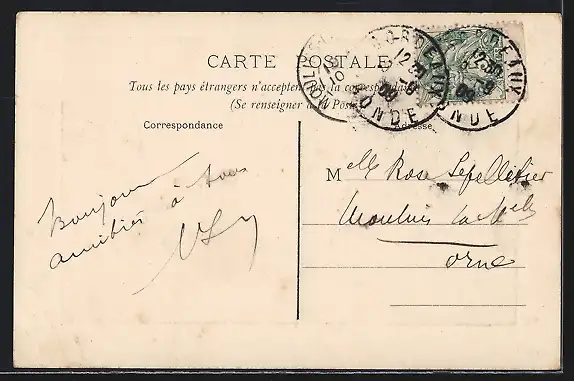 CARTE POSTALE
Tous les pays étrangers n'acceptent pas la correspondance
(Se renseigner à la Poste)
BORDEAUX
GIRONDE
Correspondance
Adresse
Bonjour
amitiés à tous
Mlle Rose Lepelletier
Moulins la Marche
Orne